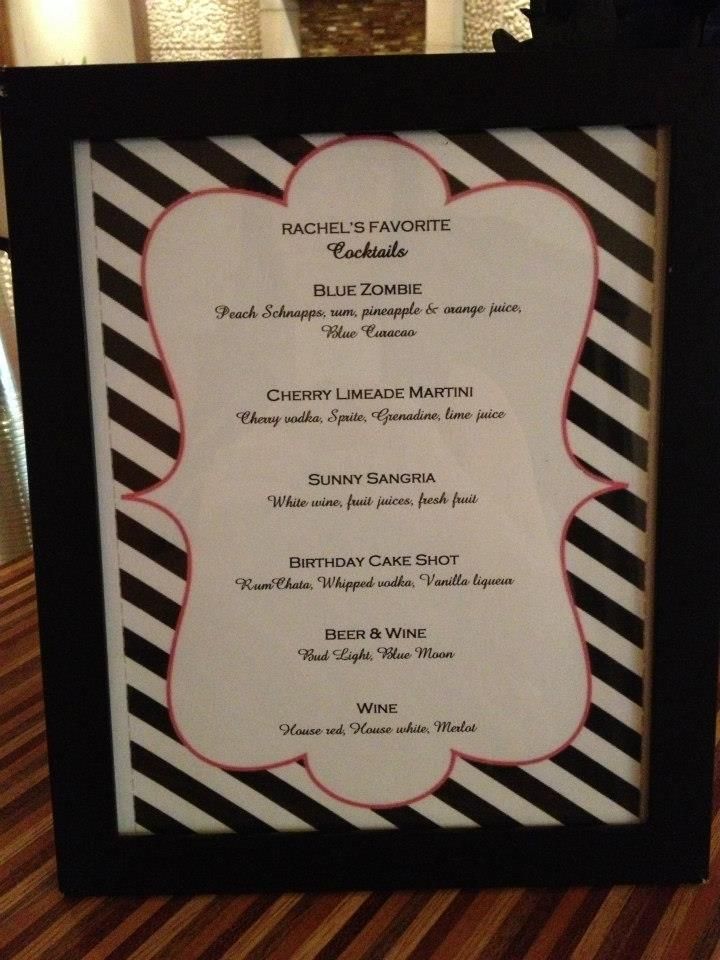 RACHEL'S FAVORITE
Cocktails
BLUE ZOMBIE
Peach Schnapps, rum, pineapple & orange juice,
Blue Curacao
CHERRY LIMEADE MARTINI
Cherry vodka, Sprite, Grenadine, lime juice
SUNNY SANGRIA
White wine, fruit juices, fresh fruit
BIRTHDAY CAKE SHOT
RumChata, Whipped vodka, Vanilla liqueur
BEER & WINE
Bud Light, Blue Moon
WINE
House red, House white, Merlot